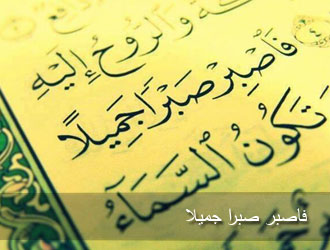 كَةُ وَالرُّوحُ إِلَيْهِ
فَاصْبِرْ صَبْرًا جَمِيلًا
تَكُونُ السَّمَاءُ
فاصبر صبرا جميلا